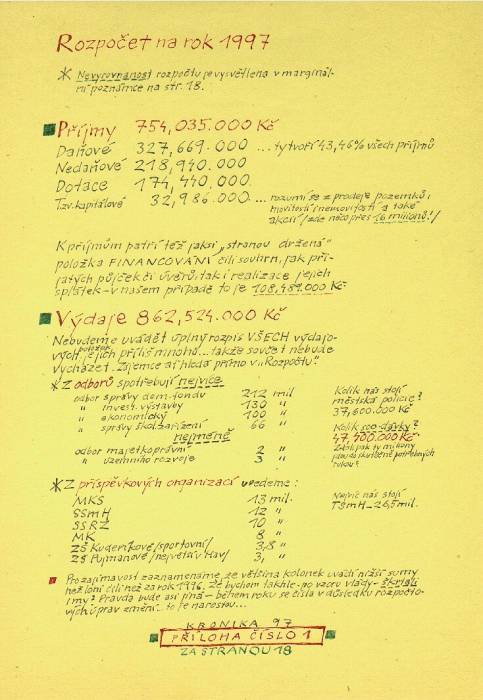 Rozpočet na rok 1997
* Nevyrovnanost rozpočtu je vysvětlena v marginál-
ní poznámce na str. 18.
Příjmy 754,035.000 Kč
Daňové 327,669.000 ...ty tvoří 43,46% všech příjmů
Nedaňové 218,940.000
Dotace 174,440.000
Tzv. kapitálové 32,986.000 ...rozumí se z prodeje pozemků,
movitostí i nemovitostí a také
akcií /zde něco přes 16 milionů!/
K příjmům patří též jaksi "stranou držená"
položka FINANCOVÁNÍ čili souhrn, jak při-
jatých půjček či úvěrů, tak i realizace jejich
splátek - v našem případě to je 108,489.000 Kč
Výdaje 862,524.000 Kč
Nebudeme uvádět úplný rozpis VŠECH výdajo-
vých položek, je jich příliš mnoho... takže součet nebude
vycházet. Zájemce ať hledá přímo v "Rozpočtu".
* Z odborů spotřebují nejvíce
odbor správy dom. fondu 212 mil
" invest. výstavby 130 "
" ekonomický 100 "
" správy škol. zařízení 66 "
nejméně
odbor majetkoprávní 2 "
" územního rozvoje 3 "
Kolik nás stojí
městská policie?
37,600.000 Kč
Kolik soc. dávky?
47,400.000 Kč
Zdali pak ty miliony
jdou do skutečně potřebných
rukou?
* Z příspěvkových organizací uvedeme:
MKS 13 mil.
SSmH 12 "
SSRZ 10 "
MK 8 "
ZŠ Kudeříkové /sportovní/ 3,8 "
ZŠ Pujmanové /největší v Hav/ 3, "
Nejvíc nás stojí
TSmH - 265 mil.
Pro zajímavost zaznamenáme, že většina kolonek uvádí nižší sumy
než loni čili než za rok 1996. Že bychom takhle - po vzoru vlády - škrtali
i my? Pravda bude asi jiná - během roku se čísla v důsledku rozpočto-
vých úprav změní... to že narostou...
KRONIKA 97
PŘÍLOHA ČÍSLO 1
ZA STRANOU 18